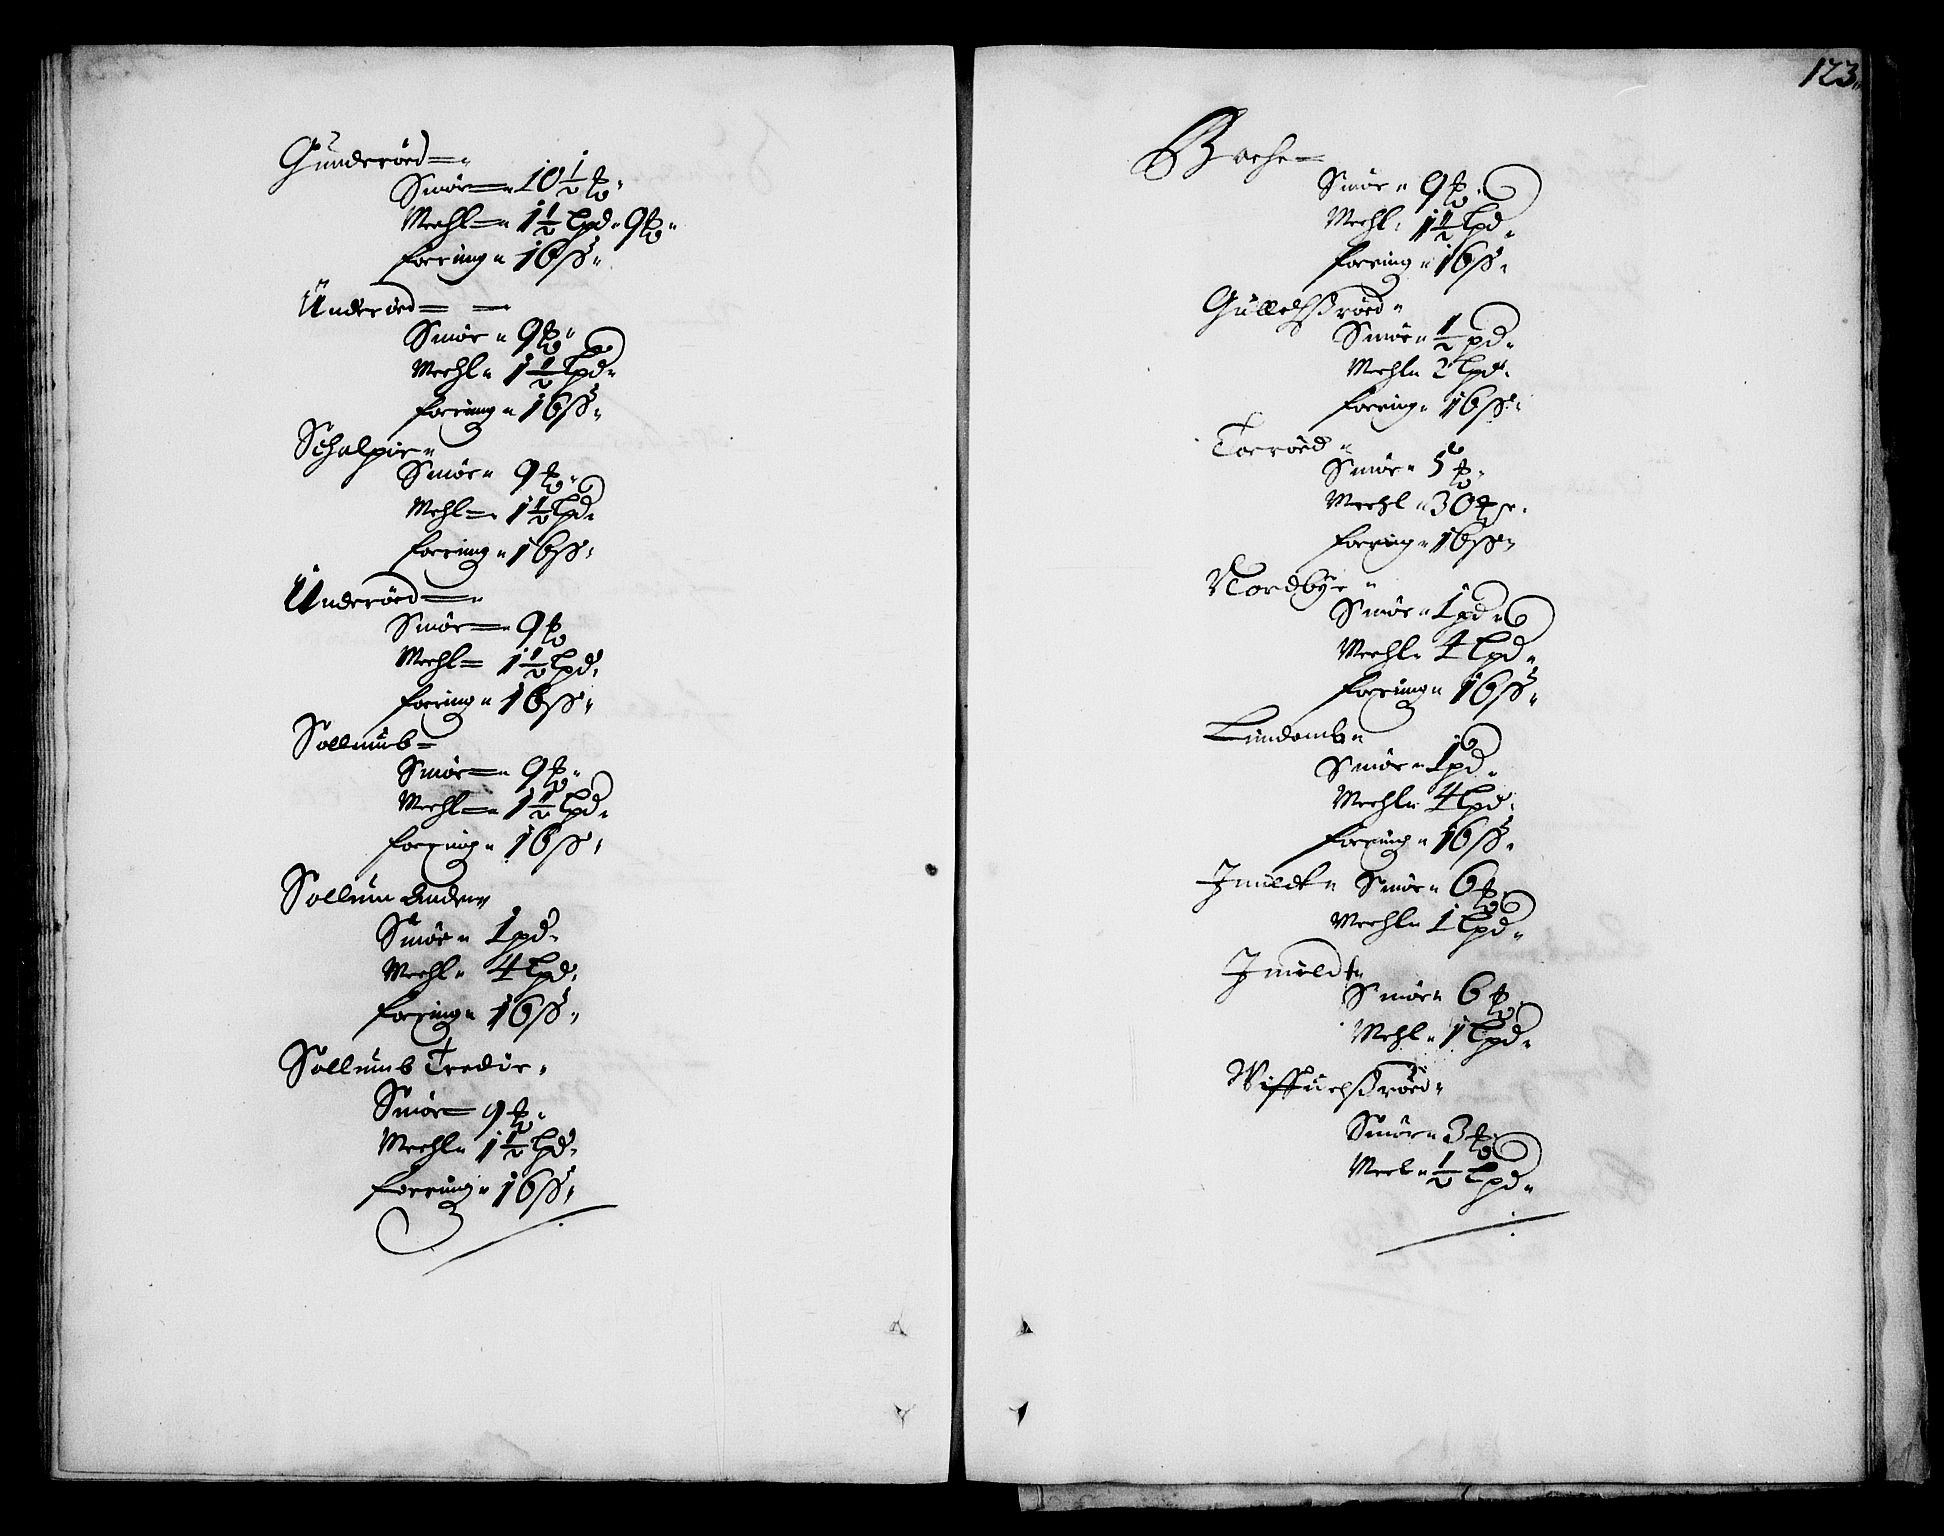 Gunderöed
Smör 10 1/2 ℔
Meehl 1 1/2 Lpd 9 ℔
foering 16 ß
Underöed
Smör 9 ℔
Meehl 1 1/2 Lpd
foering 16 ß
Schalpir
Smör 9 ℔
Mehl 1 1/2 Lpd
foering 16 ß
Underöed
Smör 9 ℔
Meehl 1 1/2 Lpd
foering 16 ß
Sollumb
Smör 9 ℔
Meehl 1 1/2 Lpd
foering 16 ß
Sollum Anden
Smör 1 pd
Meehl 4 Lpd
foering 16 ß
Sollumb Tredie
Smör 9 ℔
Meehl 1 1/2 Lpd
foering 16 ß
123
Bache
Smör 9 ℔
Meehl 1 1/2 Lpd
foering 16 ß
Gullelhßröed
Smör 1/2 pd
Meehl 2 Lpd
foering 16 ß
Torröed
Smör 5 ℔
Meehl 30
foering 16 ß
Nordbye
Smör 1 pd
Meehl 4 Lpd
foering 16 ß
Lundomb
Smör 1 pd
Meehl 4 Lpd
foering 16 ß
Imildt Smör 6 ℔
Meehl 1 Lpd
Imildt
Smör 6 ℔
Mehl 1 Lpd
Wiffuelßröed
Smör 3 ℔
Meel 1/2 Lpd